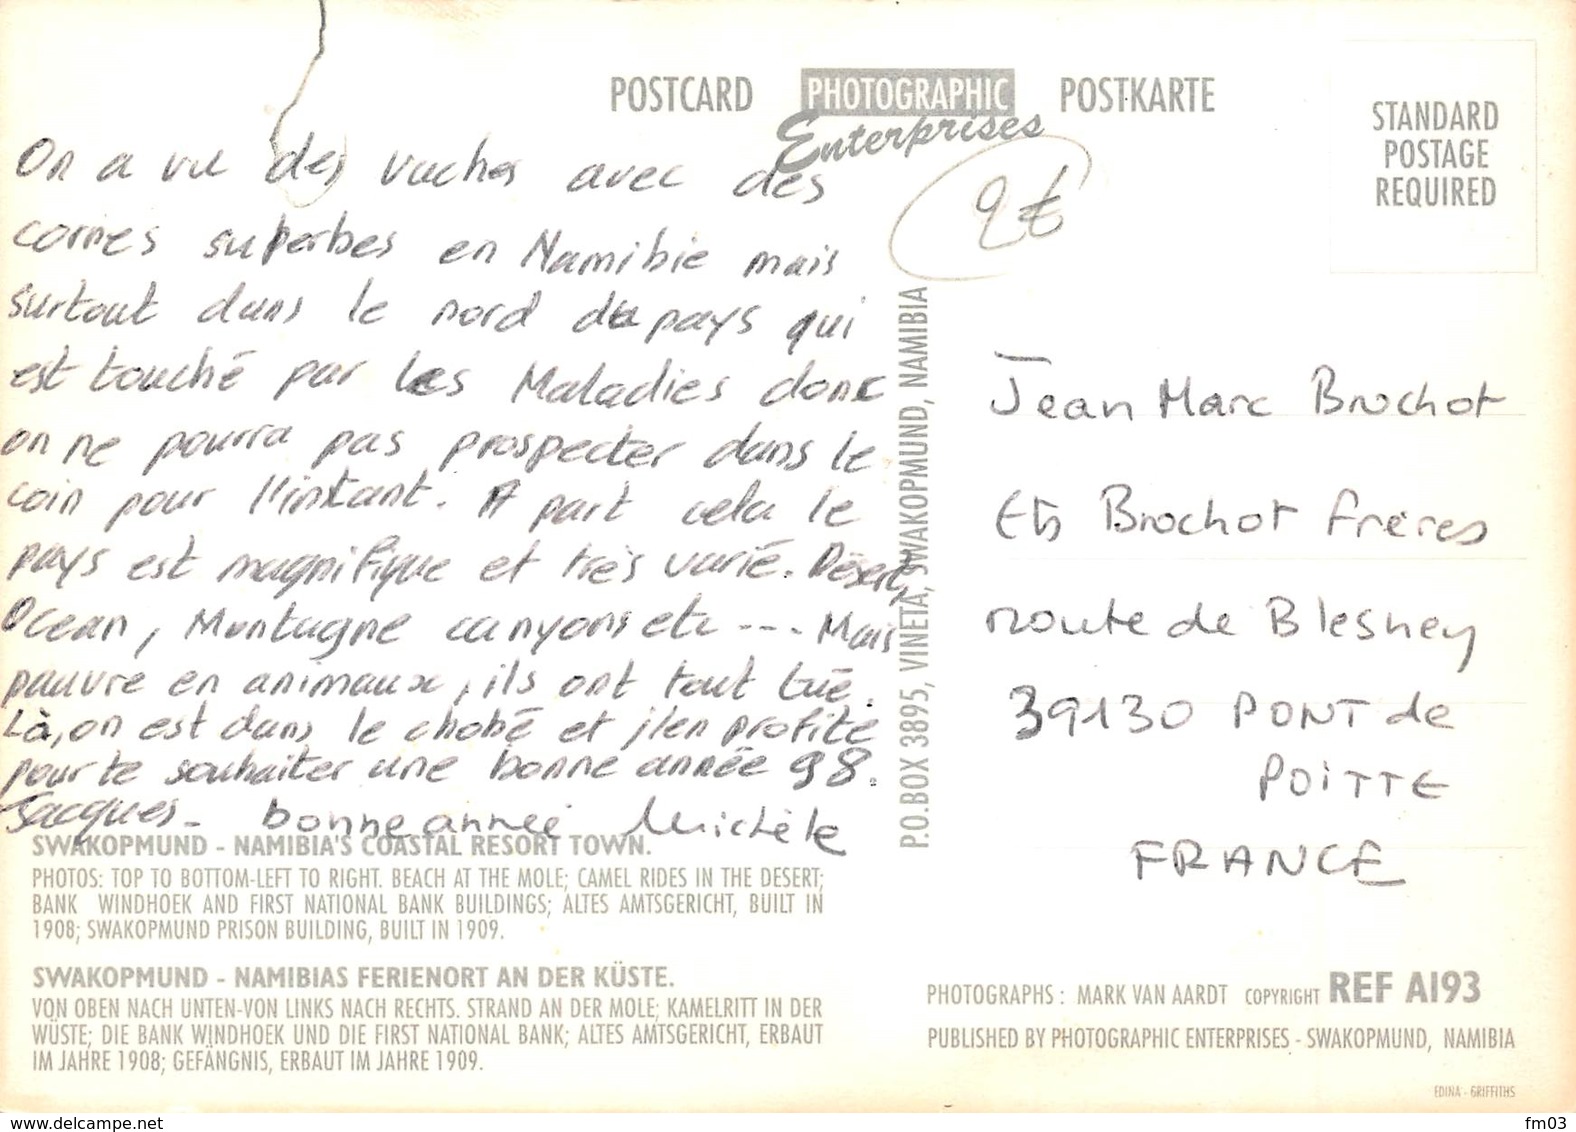 POSTCARD PHOTOGRAPHIC Enterprises POSTKARTE
STANDARD
POSTAGE
REQUIRED
2€
On a vu des vaches avec des
cornes superbes en Namibie mais
surtout dans le nord du pays qui
est touché par les Maladies donc
on ne pourra pas prospecter dans le
coin pour l'instant. A part cela le
pays est magnifique et très varié. Désert,
Ocean, Montagne canyons etc --- Mais
pauvre en animaux, ils ont tout tué.
Là, on est dans le chobé et j'en profite
pour te souhaiter une bonne année 98.
Jacques - bonne année Michèle
P.O.BOX 3895, VINETA, SWAKOPMUND, NAMIBIA
Jean Marc Brochot
Ets Brochot frères
route de Blesney
39130 PONT de
POITTE
FRANCE
SWAKOPMUND - NAMIBIA'S COASTAL RESORT TOWN.
PHOTOS: TOP TO BOTTOM-LEFT TO RIGHT. BEACH AT THE MOLE; CAMEL RIDES IN THE DESERT;
BANK WINDHOEK AND FIRST NATIONAL BANK BUILDINGS; ALTES AMTSGERICHT, BUILT IN
1908; SWAKOPMUND PRISON BUILDING, BUILT IN 1909.
SWAKOPMUND - NAMIBIAS FERIENORT AN DER KÜSTE.
VON OBEN NACH UNTEN-VON LINKS NACH RECHTS. STRAND AN DER MOLE; KAMELRITT IN DER
WÜSTE; DIE BANK WINDHOEK UND DIE FIRST NATIONAL BANK; ALTES AMTSGERICHT, ERBAUT
IM JAHRE 1908; GEFÄNGNIS, ERBAUT IM JAHRE 1909.
PHOTOGRAPHS: MARK VAN AARDT COPYRIGHT REF AI93
PUBLISHED BY PHOTOGRAPHIC ENTERPRISES - SWAKOPMUND, NAMIBIA
EDINA - GRIFFITHS
www.delcampe.net
fm03